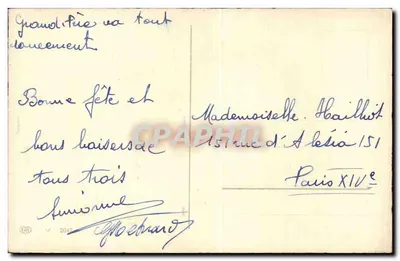 Grand-Père va tout
doucement
Bonne fête et
bons baisers de
tous trois
Simonne
Mademoiselle Hailhot
151 rue d'Alésia 151
Paris XIVe
CPAPHIL.COM